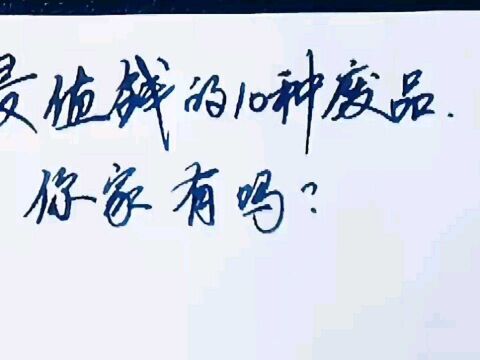 最值钱的10种废品.
你家有吗?